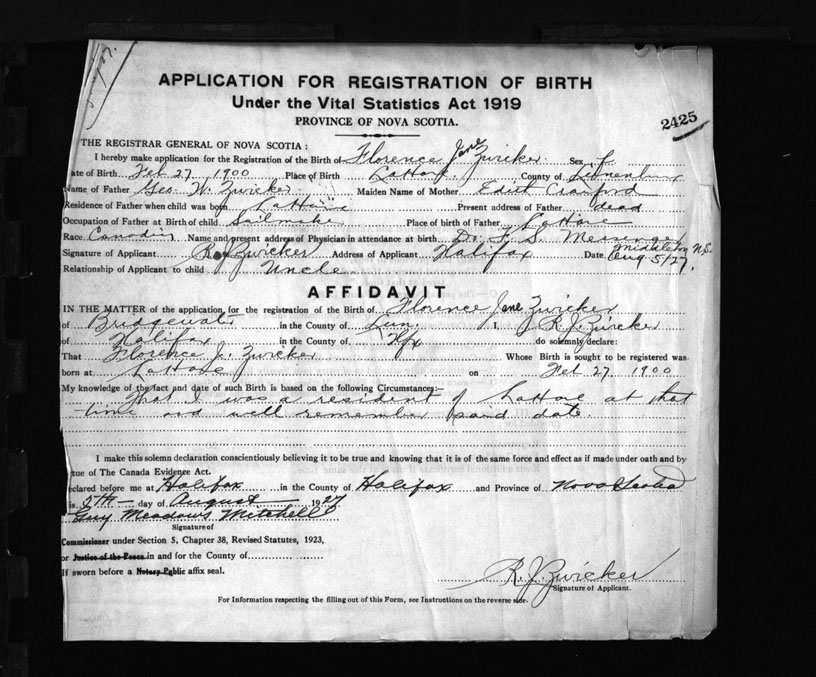 APPLICATION FOR REGISTRATION OF BIRTH
Under the Vital Statistics Act 1919
PROVINCE OF NOVA SCOTIA.
2425
THE REGISTRAR GENERAL OF NOVA SCOTIA:
I hereby make application for the Registration of the Birth of Florence Jane Zwicker Sex F
ate of Birth Feb 27 1900 Place of Birth LaHave County of Lunenburg
Name of Father Geo. W. Zwicker Maiden Name of Mother Edith Crawford
Residence of Father when child was born LaHave Present address of Father dead
Occupation of Father at Birth of child Sailmaker Place of birth of Father LaHave
Race Canadian Name and present address of Physician in attendance at birth Dr. F. S. Messenger Middleton N.S.
Signature of Applicant R J Zwicker Address of Applicant Halifax Date Aug 5/27.
Relationship of Applicant to child Uncle
AFFIDAVIT
IN THE MATTER of the application for the registration of the Birth of Florence Jane Zwicker
of Bridgewater in the County of Lun. I, R. J. Zwicker
of Halifax in the County of Hfx do solemnly declare:
That Florence J. Zwicker Whose Birth is sought to be registered was
born at LaHave on Feb 27 1900
My knowledge of the fact and date of such Birth is based on the following Circumstances:—
That I was a resident of LaHave at that
time and well remember said date.
I make this solemn declaration conscientiously believing it to be true and knowing that it is of the same force and effect as if made under oath and by
tue of The Canada Evidence Act.
eclared before me at Halifax in the County of Halifax and Province of Nova Scotia
is 5th day of August 1927
Guy Meadows Mitchell
Signature of
Commissioner under Section 5, Chapter 38, Revised Statutes, 1923,
or Justice of the Peace in and for the County of
If sworn before a Notary Public affix seal.
R. J. Zwicker
Signature of Applicant.
For Information respecting the filling out of this Form, see Instructions on the reverse side.